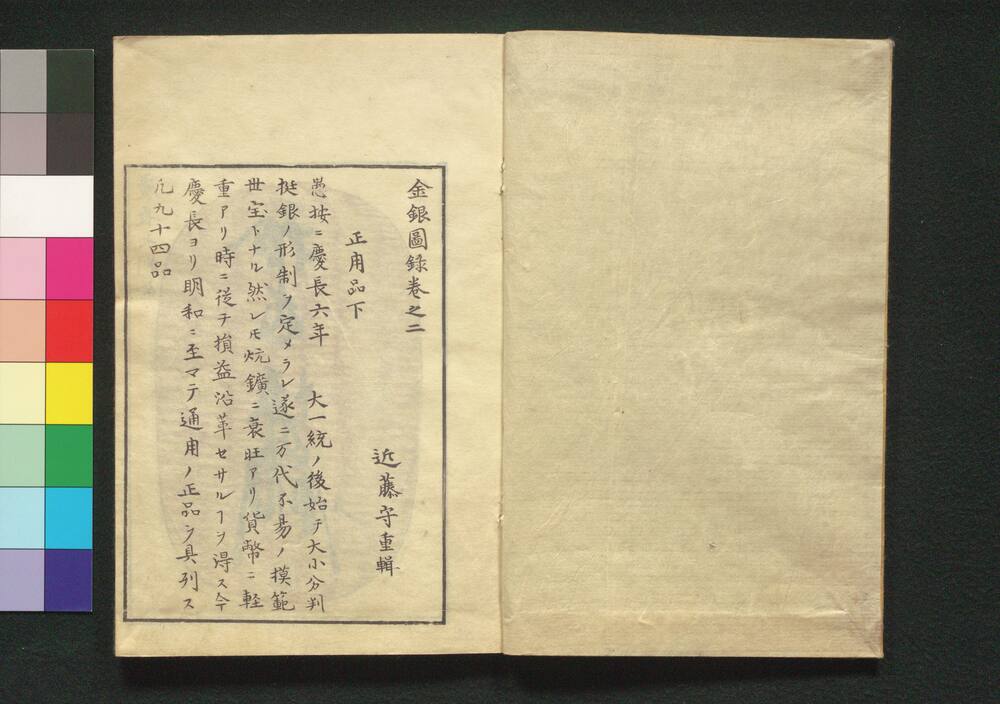 金銀圖録巻之二
近藤守重輯
正用品下
愚按ニ慶長六年　大一統ノ後始テ大小分判
挺銀ノ形制ヲ定メラレ遂ニ万代不易ノ摸範
世宝トナル然レモ炕鑛ニ衰旺アリ貨幣ニ軽
重アリ時ニ従テ損益沿革セサルヿヲ得ス今
慶長ヨリ明和ニ至マテ通用ノ正品ヲ具列ス
凡九十四品